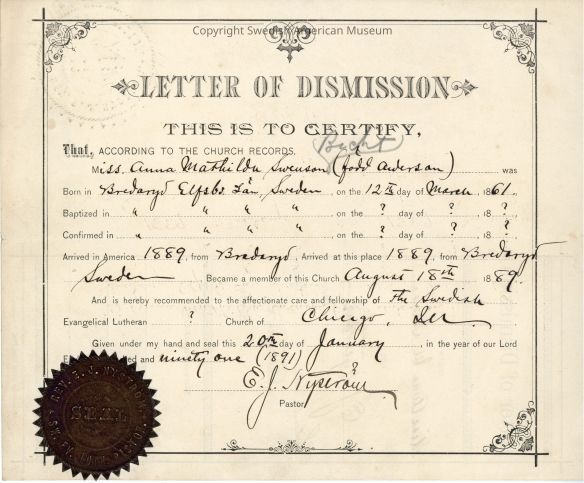 Copyright Swedish American Museum
LETTER OF DISMISSION
THIS IS TO CERTIFY,
Bycht
That, ACCORDING TO THE CHURCH RECORDS,
Miss. Anna Mathilda Swenson (född Anderson) was
Born in Bredaryd Elfsbo. Län, Sweden on the 12th day of March, 1861.
Baptized in " " " " on the ? day of ?, 18 ?
Confirmed in " " " " on the ? day of ?, 18 ?
Arrived in America 1889, from Bredaryd, Arrived at this place 1889, from Bredaryd
Sweden, Became a member of this Church August 18th 1889.
And is hereby recommended to the affectionate care and fellowship of the Swedish
Evangelical Lutheran ? Church of Chicago, Ill.
Given under my hand and seal this 20th day of January, in the year of our Lord
and ninety one (1891)
E. J. Nyström
Pastor